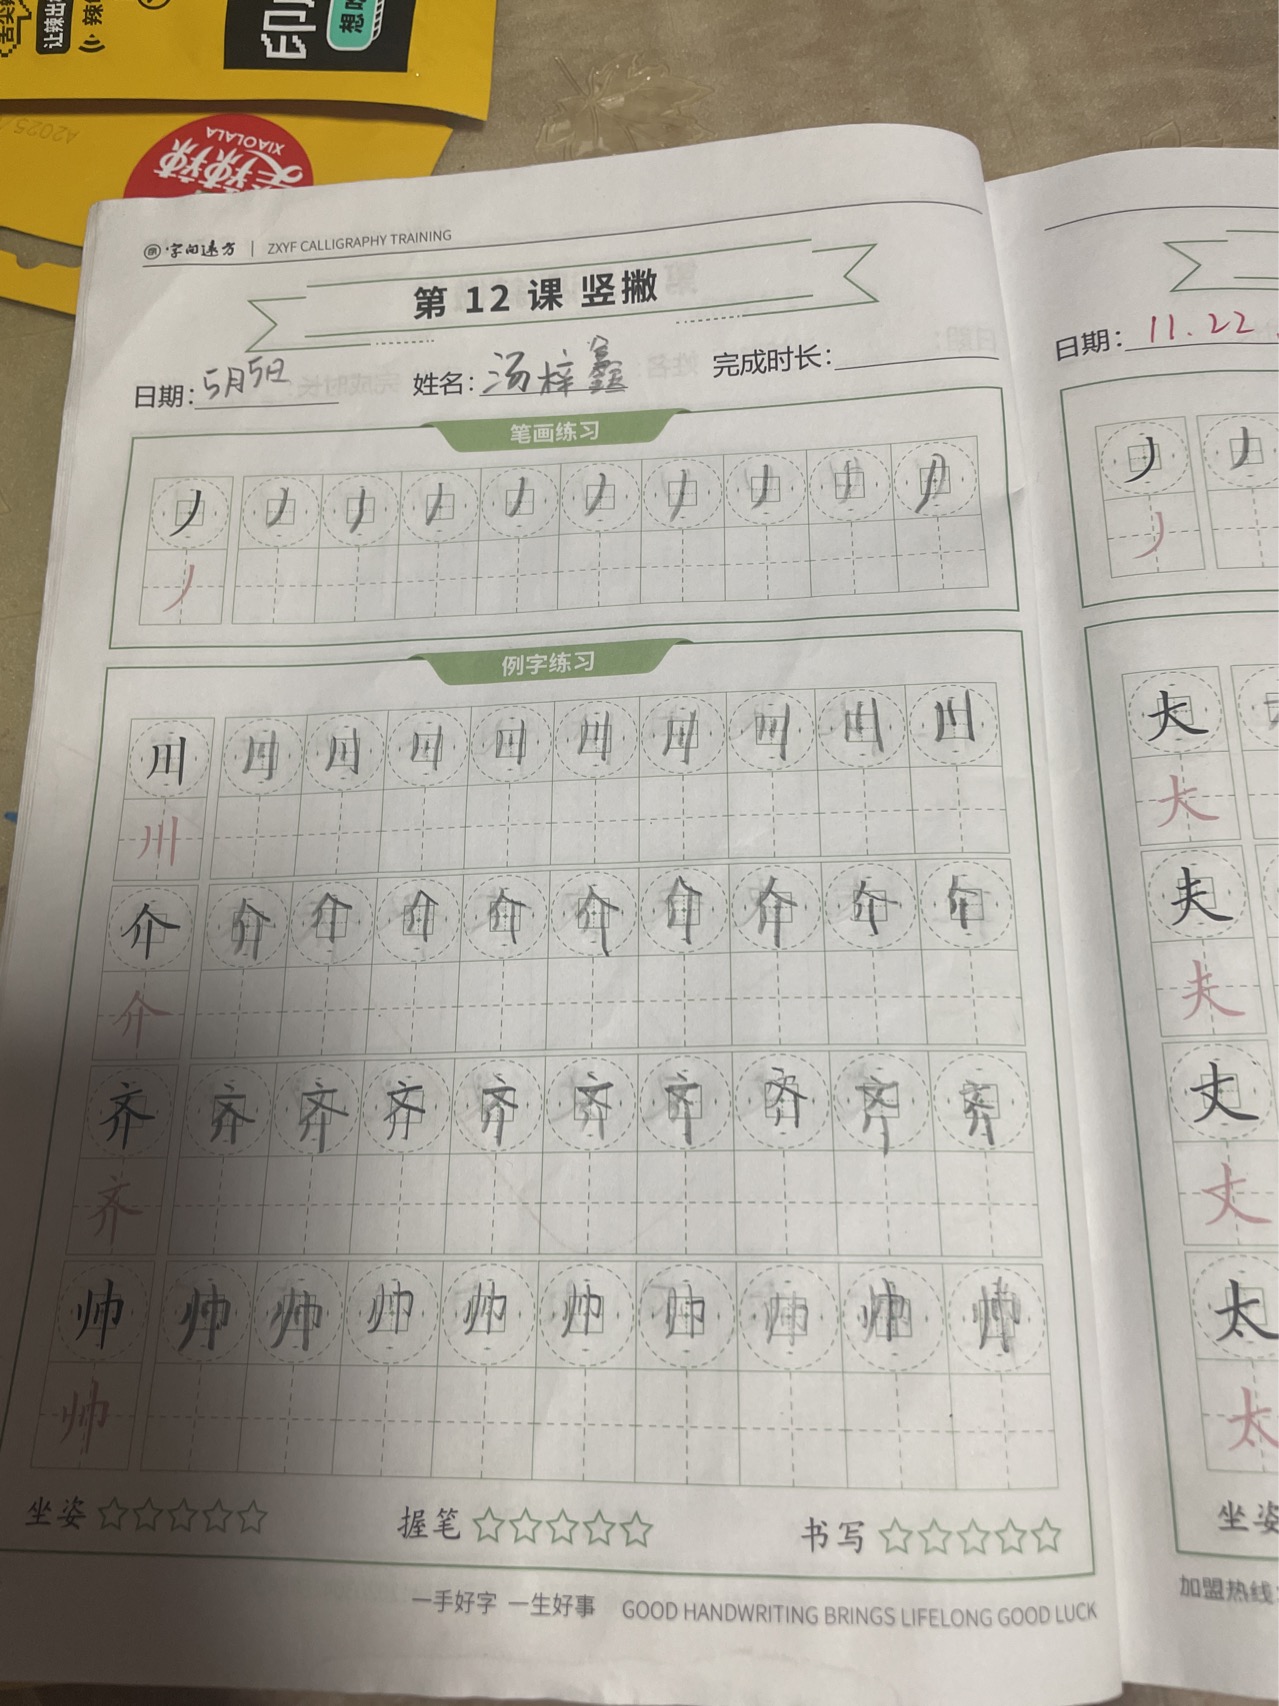 让辣出
辣
印
想吃
A2025
XIAOLALA
字向远方 | ZXYF CALLIGRAPHY TRAINING
第 12 课 竖撇
日期:5月5日 姓名:汤梓鑫 完成时长:
笔画练习
丿 丿 丿 丿 丿 丿 丿 丿 丿 丿
丿
例字练习
川 川 川 川 川 川 川 川 川 川
川
介 介 介 介 介 介 介 介 介 介
介
齐 齐 齐 齐 齐 齐 齐 齐 齐 齐
齐
帅 帅 帅 帅 帅 帅 帅 帅 帅 帅
帅
坐姿 握笔 书写
一手好字 一生好事 GOOD HANDWRITING BRINGS LIFELONG GOOD LUCK
日期: 11.22
丿 丿
丿
大
大
夫
夫
丈
丈
太
太
坐姿
加盟热线: